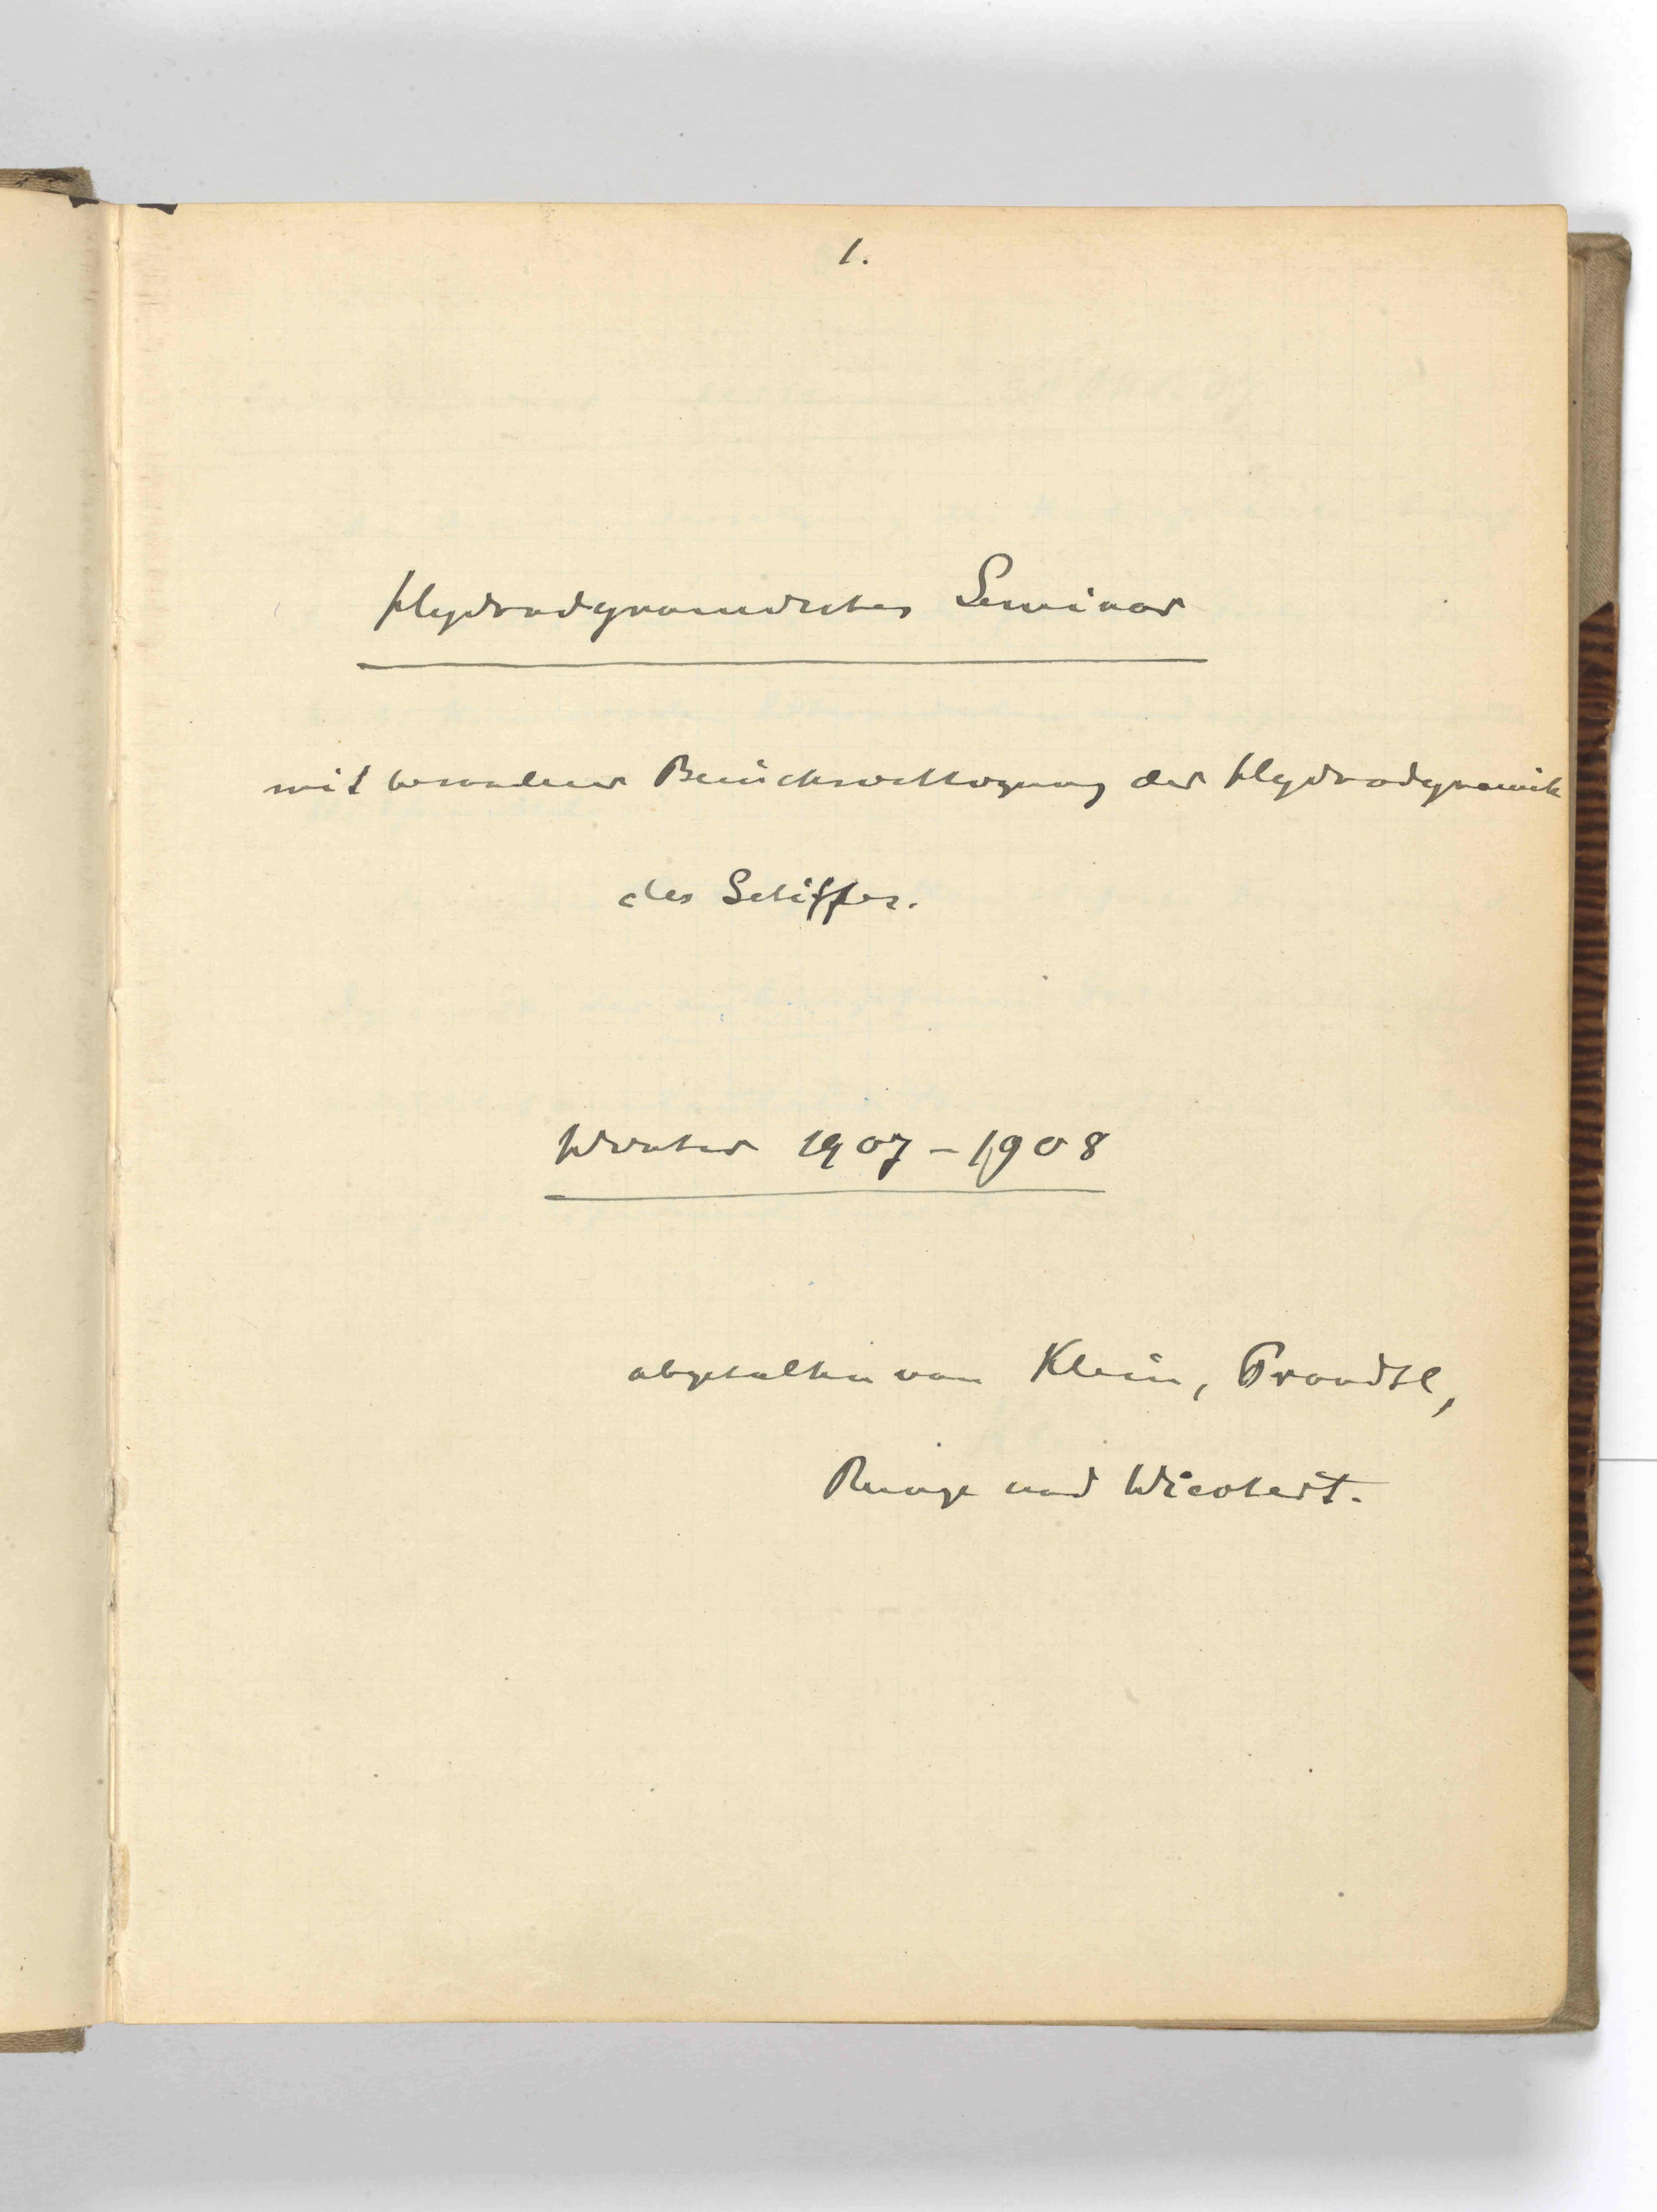 1.
Hydrodynamisches Seminar
mit besonderer Berücksichtigung der Hydrodynamik
des Schiffes.
Winter 1907-1908
abgehalten von Klein, Prandtl,
Runge und Wiechert.